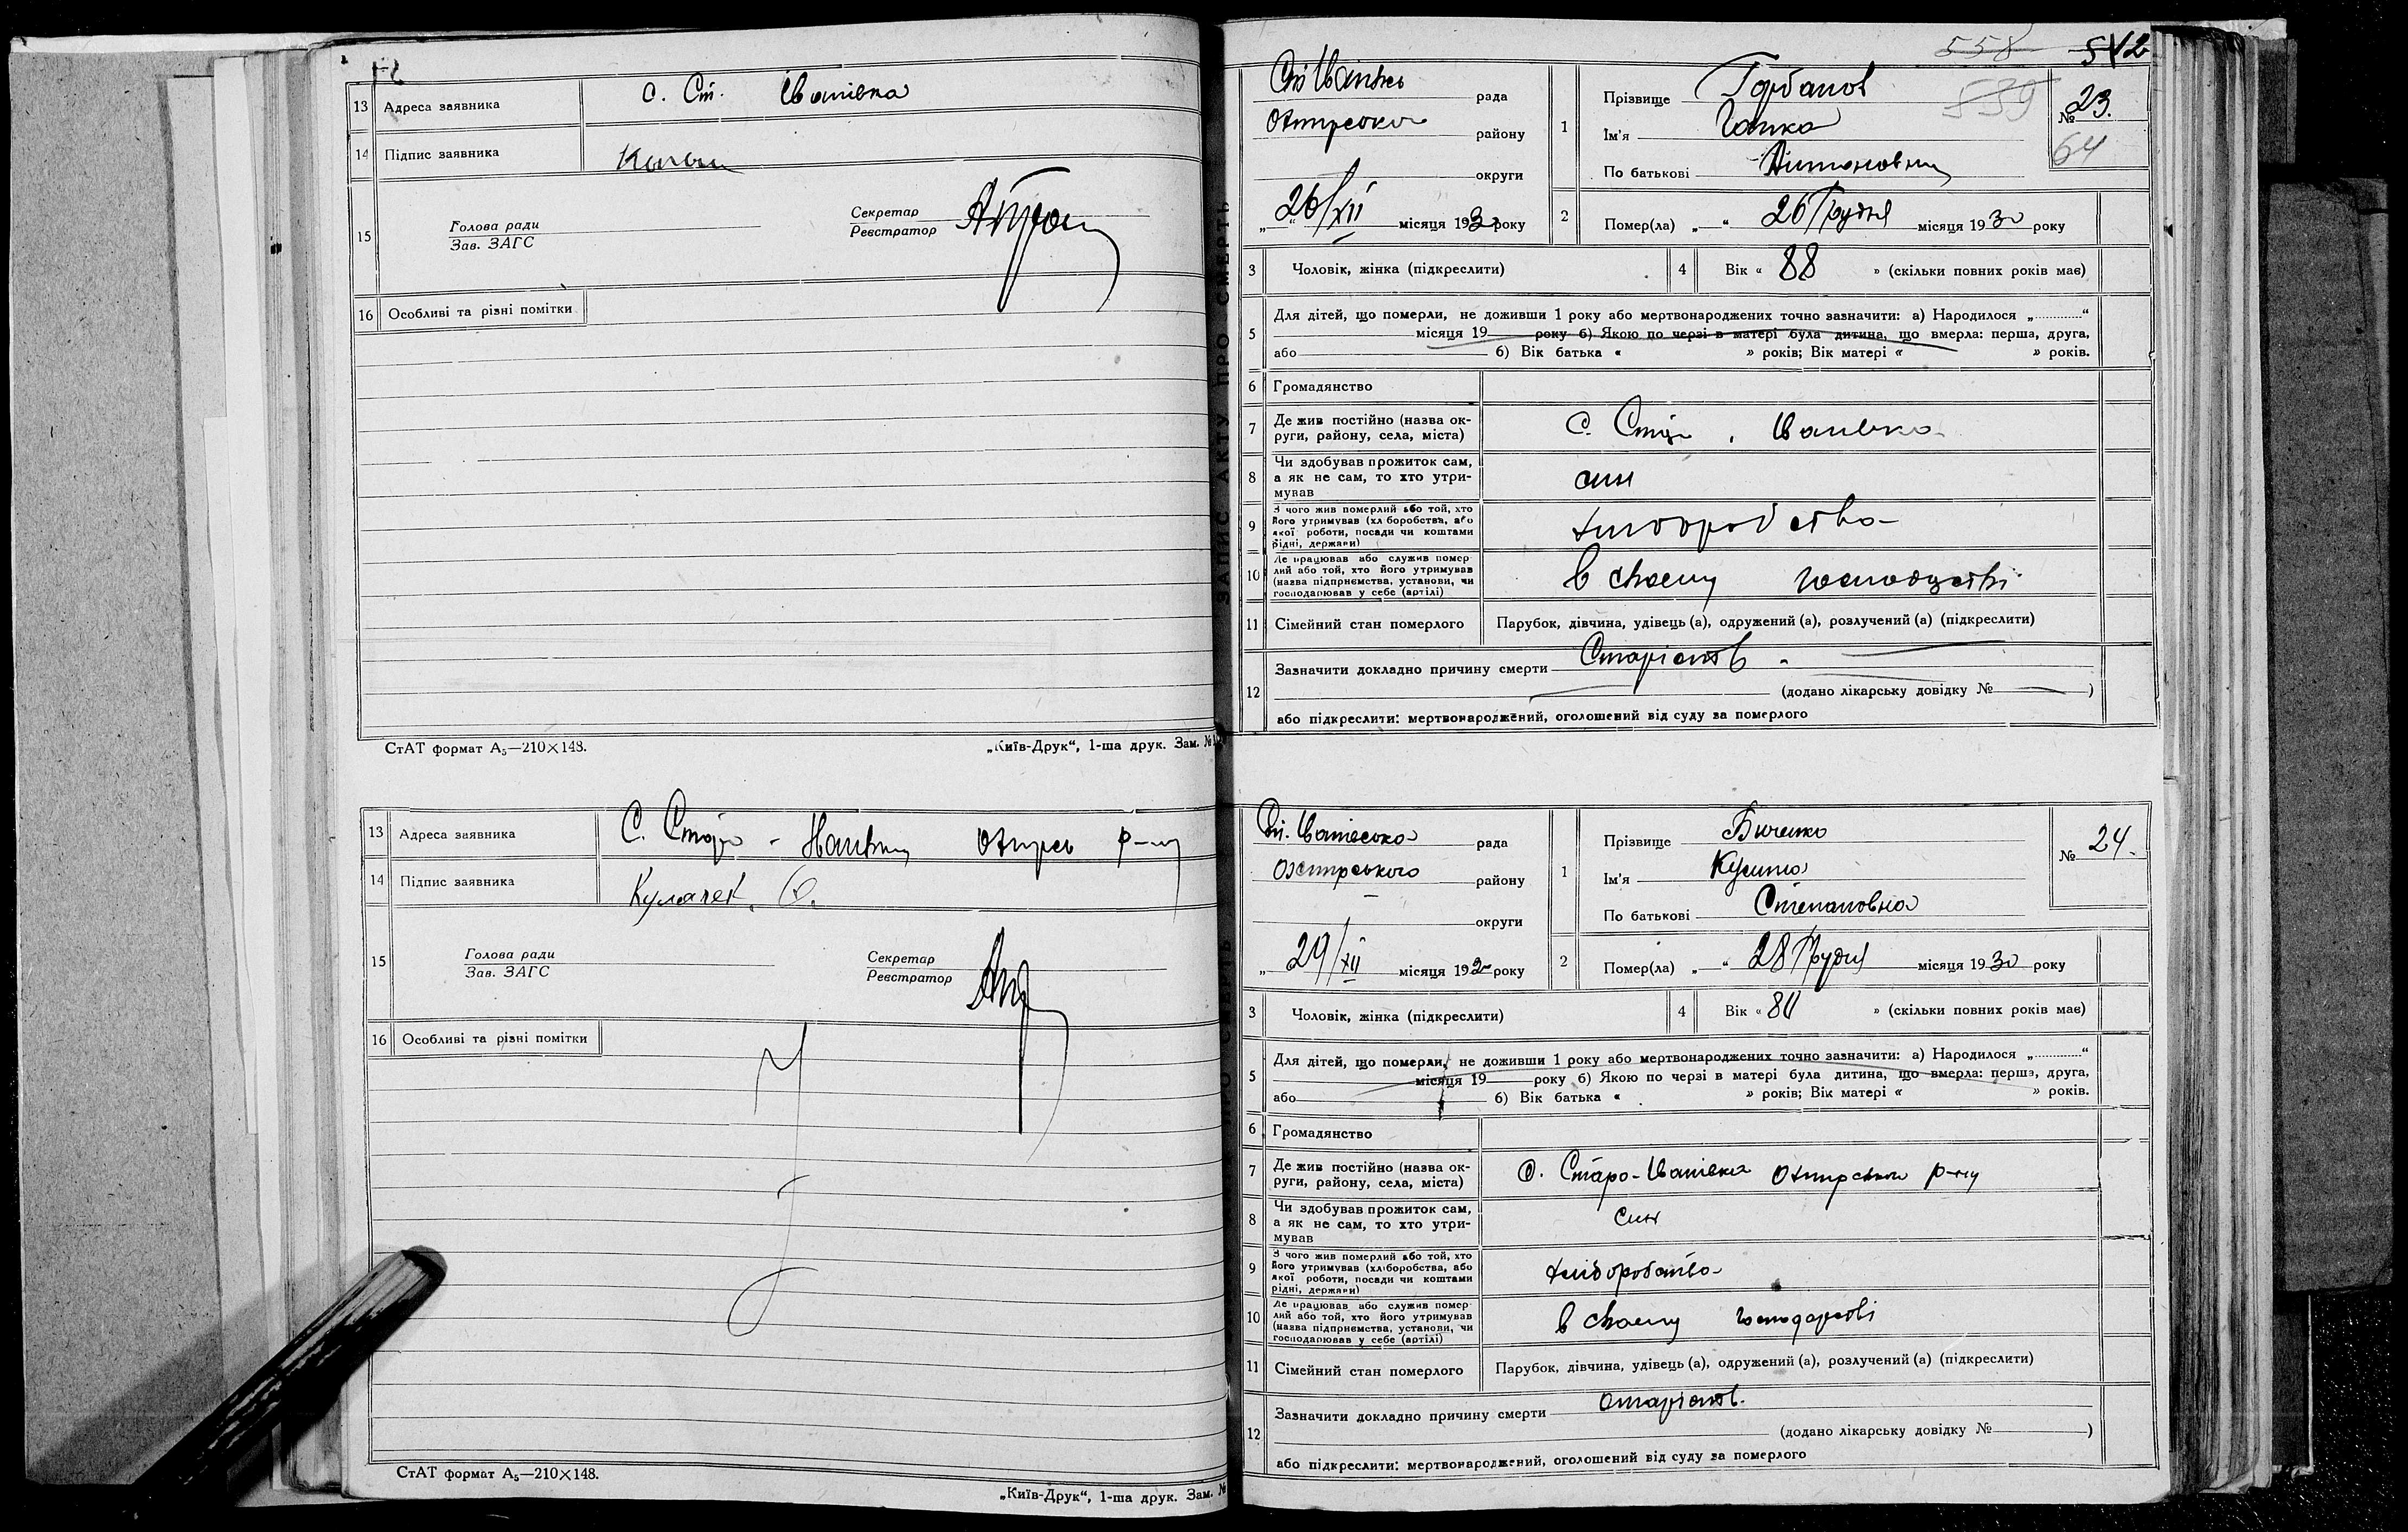 13 Адреса заявника С. Ст. Іванівка
14 Підпис заявника
15 Голова ради Секретар
Зав. ЗАГС Реєстратор
16 Особливі та різні помітки
СтАТ формат А₅—210×148. „Київ-Друк“, 1-ша друк. Зам. №
13 Адреса заявника С. Старо - Іванівки Охтирсь р-ну
14 Підпис заявника
15 Голова ради Секретар
Зав. ЗАГС Реєстратор
16 Особливі та різні помітки
СтАТ формат А₅—210×148.
„Київ-Друк“, 1-ша друк. Зам. №
ЗАПИС АКТУ ПРО СМЕРТЬ
558 542
539
рада
Охтирського району
округи
26/XII місяця 1930 року
1 Прізвище Горбанов
Ім'я Ганка
По батькові Антоновна
№ 23.
64
2 Помер(ла) „ “ 26 Грудня місяця 1930 року
3 Чоловік, жінка (підкреслити)
4 Вік « 88 » (скільки повних років має)
5 Для дітей, що померли, не доживши 1 року або мертвонароджених точно зазначити: а) Народилося „............“
місяця 19 року б) Якою по черзі в матері була дитина, що вмерла: перша, друга,
або б) Вік батька « » років; Вік матері « » років.
6 Громадянство
7 Де жив постійно (назва ок-
руги, району, села, міста) С. Старо Іванівка
8 Чи здобував прожиток сам,
а як не сам, то хто утри-
мував син
9 З чого жив померлий або той, хто
його утримував (хліборобства, або
якої роботи, посади чи коштами
рідні, держави) хліборобства
10 Де працював або служив помер-
лий або той, хто його утримував
(назва підприємства, установи, чи
господарював у себе (артілі) в своєму господарстві
11 Сімейний стан померлого Парубок, дівчина, удівець (а), одружений (а), розлучений (а) (підкреслити)
12 Зазначити докладно причину смерти Старість
(додано лікарську довідку № )
або підкреслити: мертвонароджений, оголошений від суду за померлого
Ст. Іванівська рада
Охтирського району
округи
„ 29/XII місяця 193 року
1 Прізвище
Ім'я
По батькові Степановна
№ 24.
2 Помер(ла) „ “ 28 Грудня місяця 1930 року
3 Чоловік, жінка (підкреслити)
4 Вік « 80 » (скільки повних років має)
5 Для дітей, що померли, не доживши 1 року або мертвонароджених точно зазначити: а) Народилося „............“
місяця 19 року б) Якою по черзі в матері була дитина, що вмерла: перша, друга,
або б) Вік батька « » років; Вік матері « » років.
6 Громадянство
7 Де жив постійно (назва ок-
руги, району, села, міста) С. Старо-Іванівка Охтирського р-ну
8 Чи здобував прожиток сам,
а як не сам, то хто утри-
мував син
9 З чого жив померлий або той, хто
його утримував (хліборобства, або
якої роботи, посади чи коштами
рідні, держави) хліборобства
10 Де працював або служив помер-
лий або той, хто його утримував
(назва підприємства, установи, чи
господарював у себе (артілі) в своєму господарстві
11 Сімейний стан померлого Парубок, дівчина, удівець (а), одружений (а), розлучений (а) (підкреслити)
12 Зазначити докладно причину смерти старість.
(додано лікарську довідку № )
або підкреслити: мертвонароджений, оголошений від суду за померлого